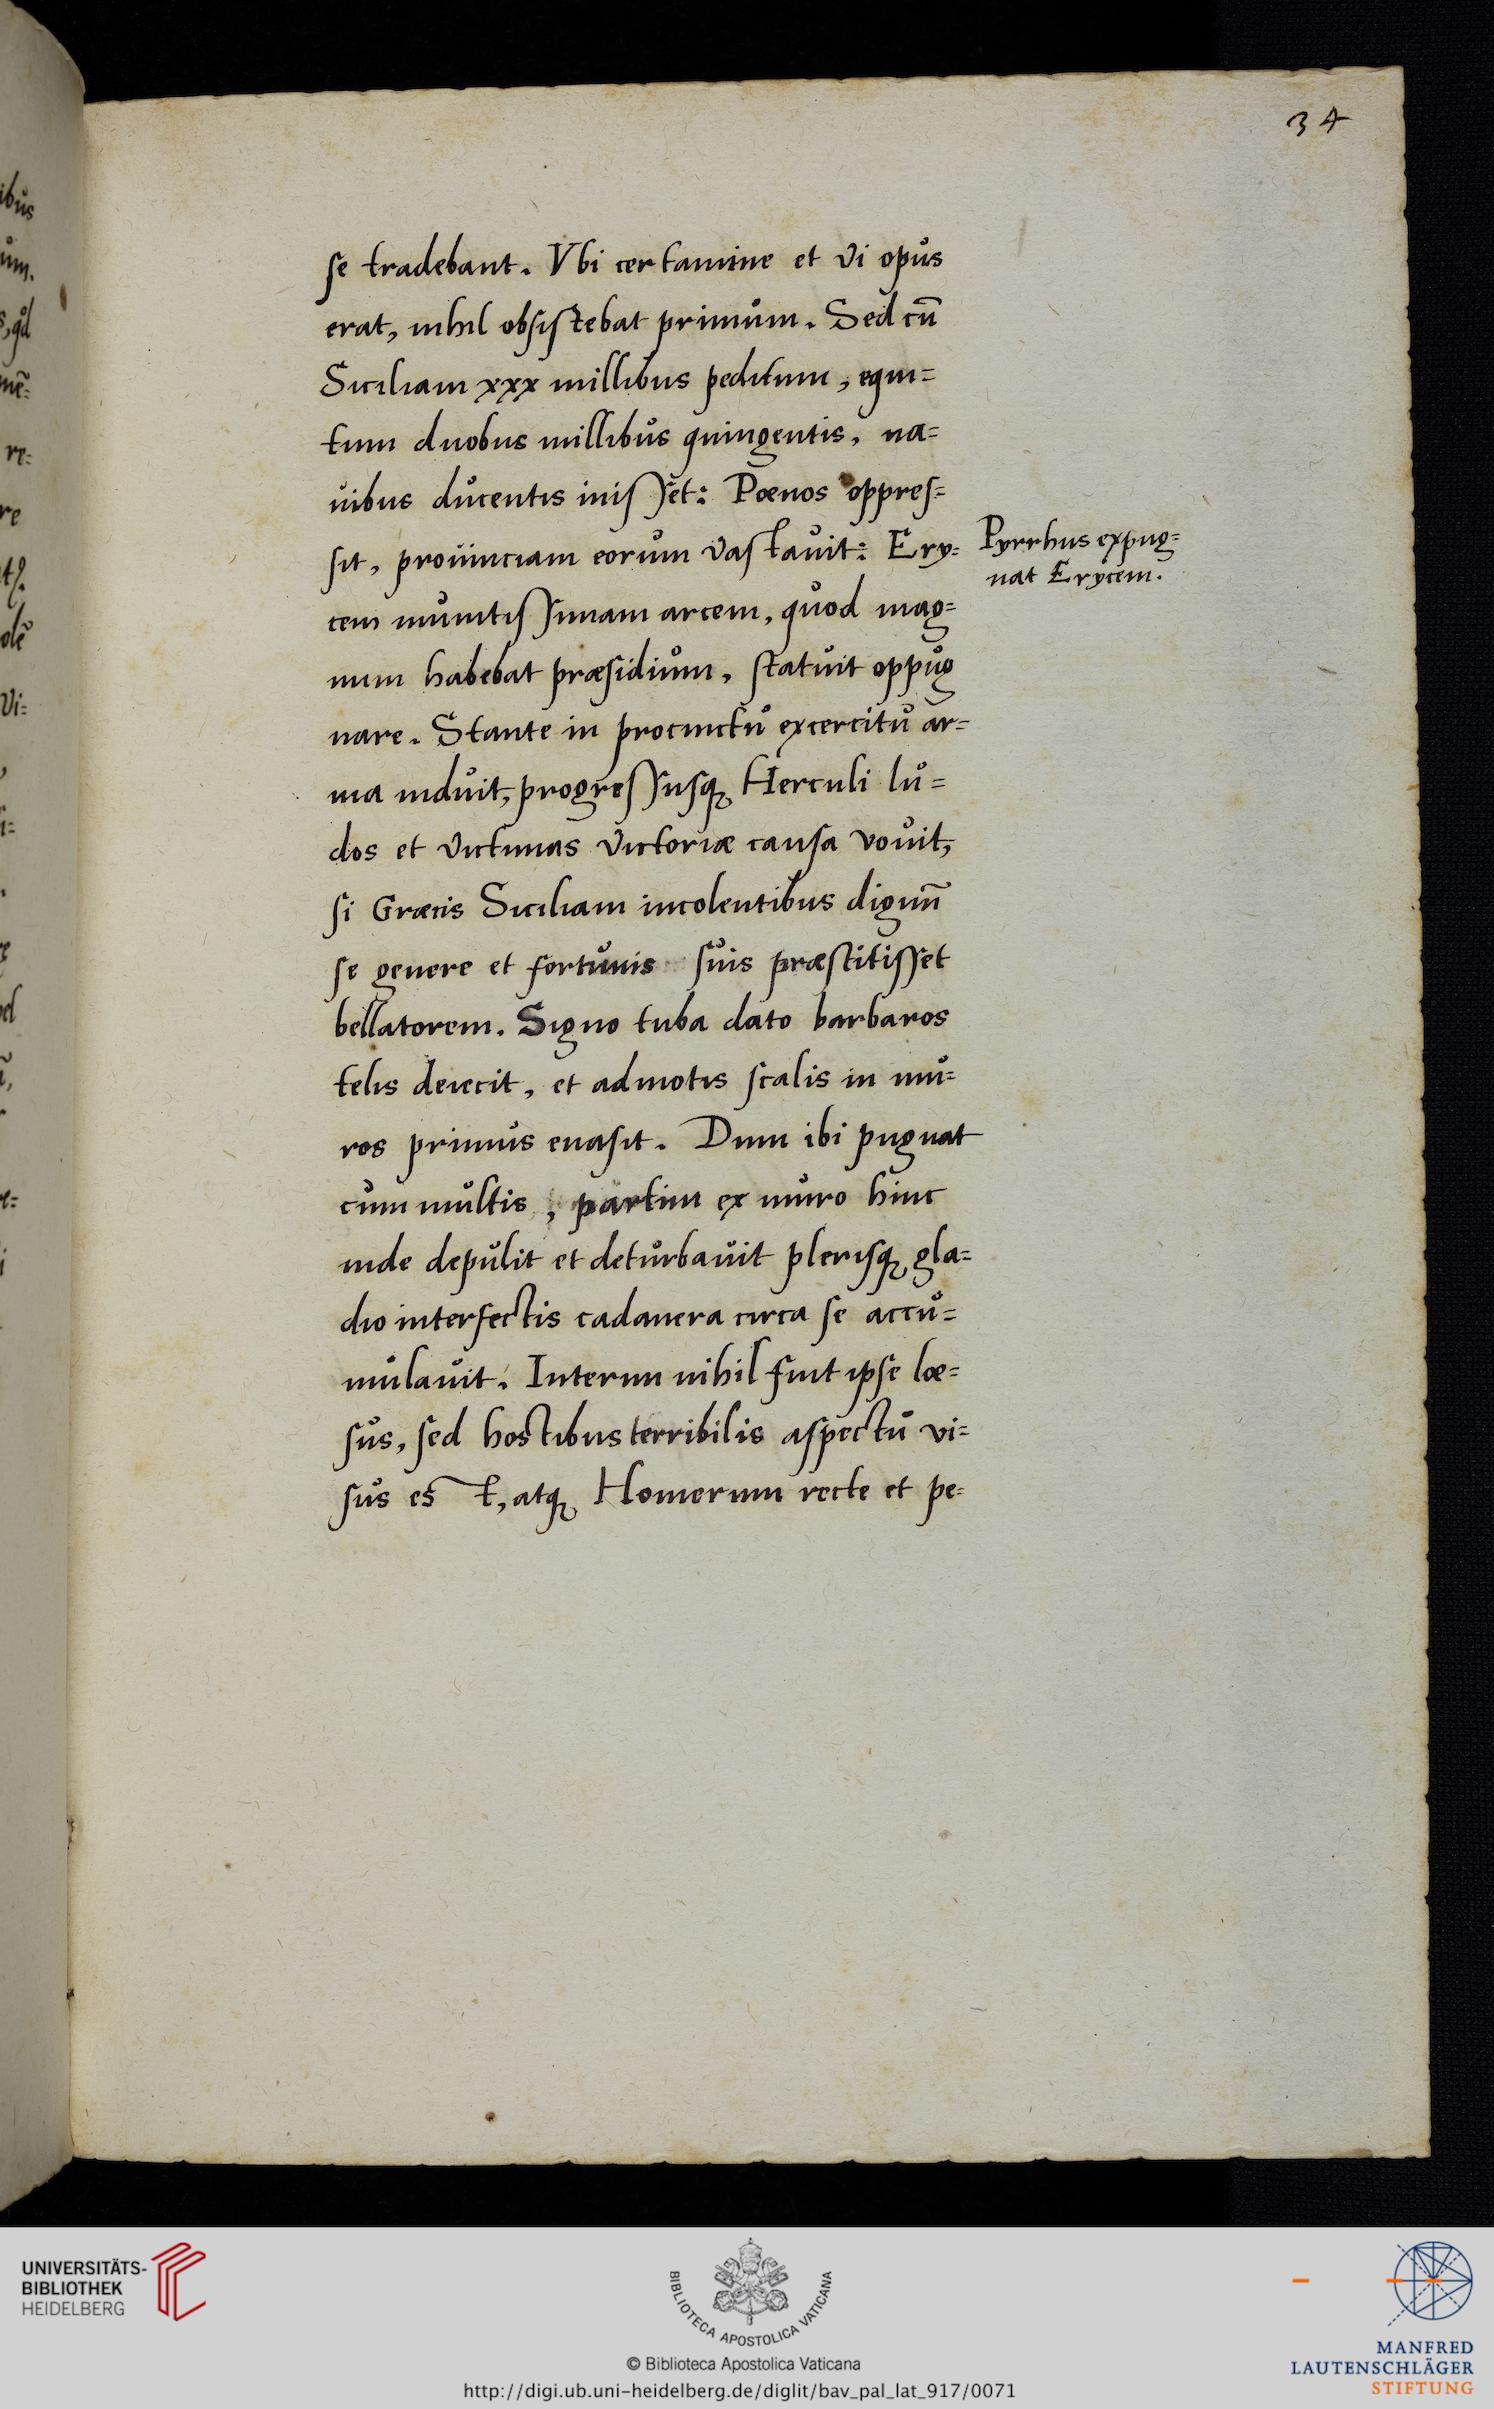 34
se tradebant. Vbi certamine et vi opus
erat, nihil obsistebat primum. Sed cū
Siciliam xxx millibus peditum, equi=
tum duobus millibus quingentis, na=
uibus ducentis inisset: Pœnos oppres=
sit, prouinciam eorum vastauit: Ery=
cem munitissimam arcem, quod mag=
num habebat præsidium, statuit oppug
nare. Stante in procinctu excercitu ar=
ma induit, progressusq; Herculi lu=
dos et victimas victoriæ causa vouit,
si Græcis Siciliam incolentibus dignū
se genere et fortunis suis præstitisset
bellatorem. Signo tuba dato barbaros
telis deiecit, et admotis scalis in mu=
ros primus euasit. Dum ibi pugnat
cum multis, partim ex muro hinc
inde depulit et deturbauit plerisq; gla=
dio interfectis cadauera circa se accu=
mulauit. Interim nihil fuit ipse læ=
sus, sed hostibus terribilis aspectu vi=
sus est, atq; Homerum recte et pe=
Pyrrhus expug=
nat Erycem.
ibus
um.
re=
re
Vi=
UNIVERSITÄTS-
BIBLIOTHEK
HEIDELBERG
BIBLIOTECA APOSTOLICA VATICANA
© Biblioteca Apostolica Vaticana
http://digi.ub.uni-heidelberg.de/diglit/bav_pal_lat_917/0071
MANFRED
LAUTENSCHLÄGER
STIFTUNG